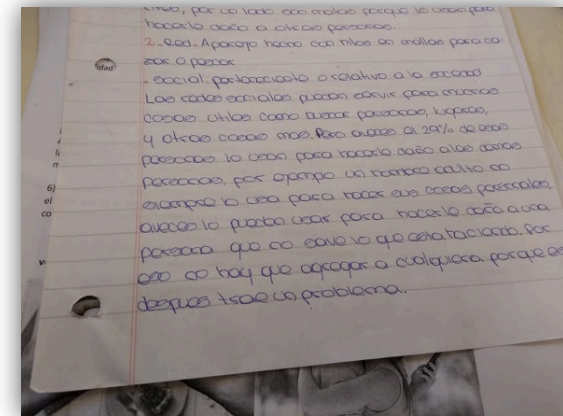 por un lado son malas porque lo usan para
hacerle daño a otras personas.
2. Red. Aparejo hecho con hilos en mallas para ca-
zar o pescar
- social: perteneciente o relativo a la sociedad
Las redes sociales pueden servir para muchas
cosas utiles como buscar personas, lugares,
y otras cosas mas. Pero aveces al 29% de esas
personas lo usan para hacerle daño a las demas
personas, por ejempo un hombre adulto no
siempre lo usa para hacer sus cosas personales,
aveces lo puede usar para hacerle daño a una
persona que no save lo que esta haciendo. Por
eso no hay que agregar a cualquiera porque es
despues trae un problema.
dad
6)
el
co